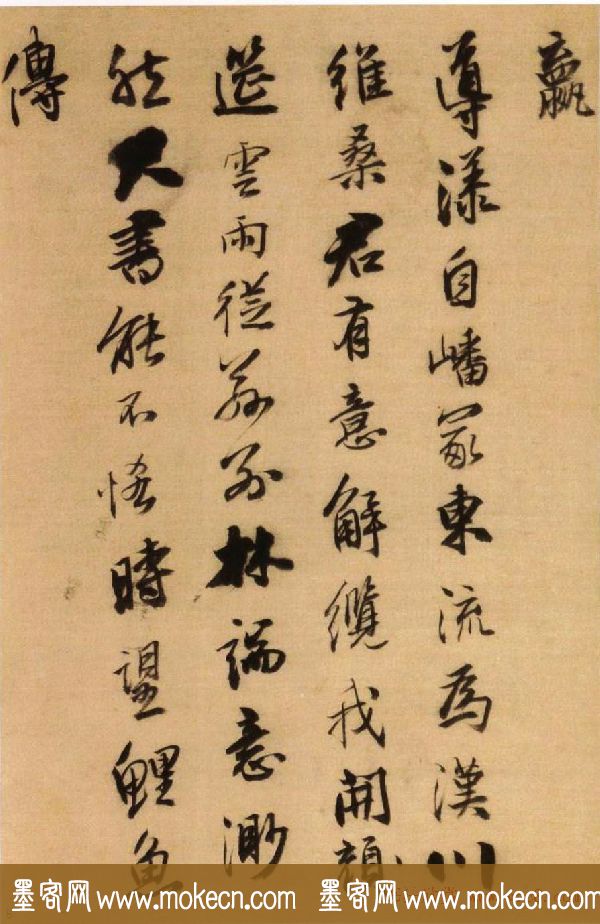 導漾自嶓冢東流為漢川
維桑君有意解纜我開顏
筵雲雨從茲別林端意渺
然尺書能不悋時望鯉魚
傳
墨客网 www.mokecn.com 墨客网 www.mokecn.com